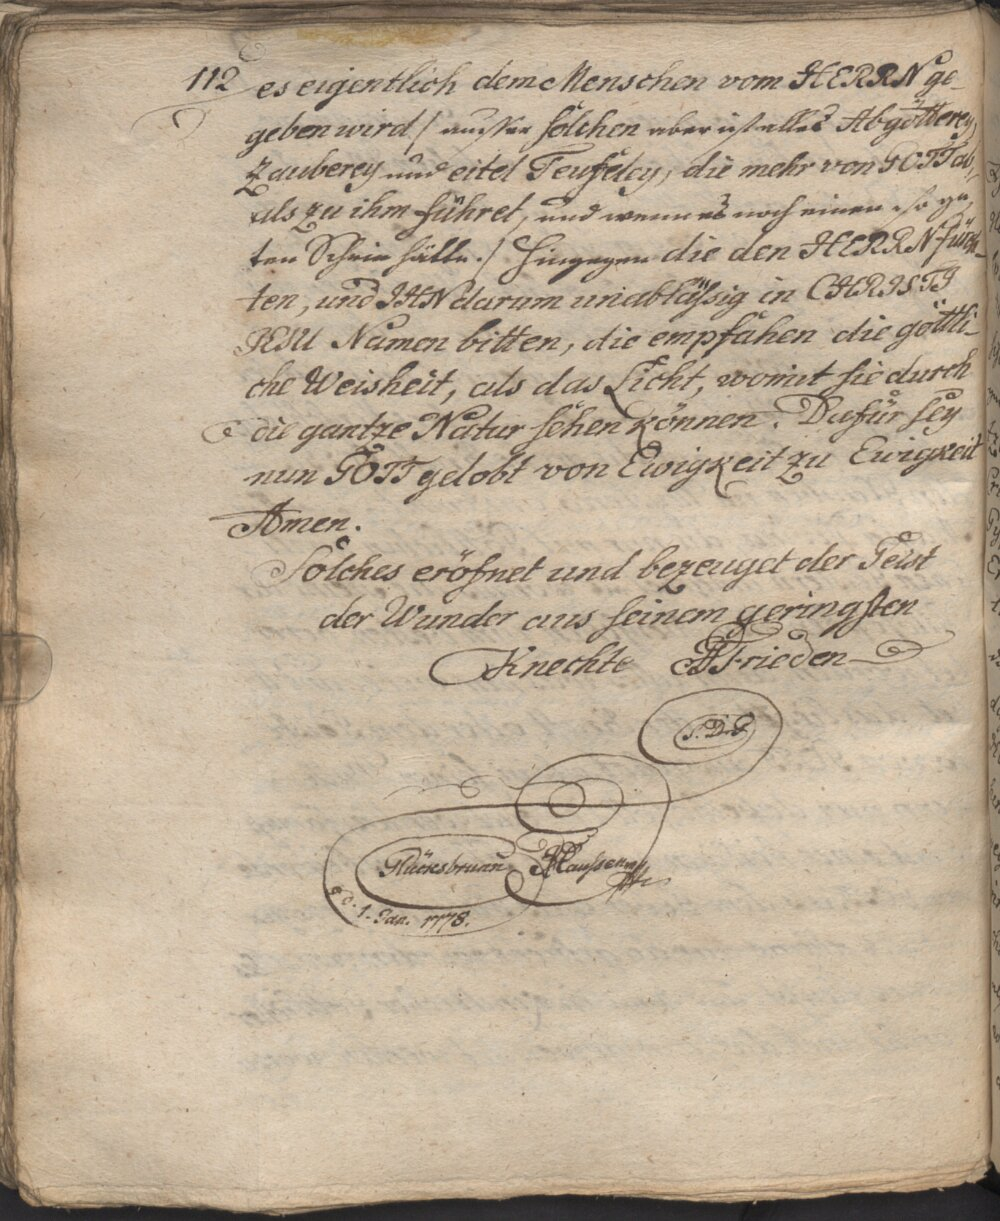 112 es eigentlich dem Menschen vom HERRN ge-
geben wird / ausser solchen aber ist alles Abgötterey,
Zauberey und eitel Teufeley, die mehr von GOTT ab,
als zu ihm führet, und wenn es noch einen so gu-
ten Schein hätte. / Hingegen die den HERRN fürch-
ten, und IHN darum unabläßig in CHRISTI
JESU Namen bitten, die empfahen die göttli-
che Weisheit, als das Licht, womit sie durch
die gantze Natur sehen können. Dafür sey
nun GOTT gelobt von Ewigkeit zu Ewigkeit
Amen.
Solches eröfnet und bezeuget der Geist
der Wunder aus seinem geringsten
Knechte Frieden
S. D. G
Glücksbrunn
d. 1. Jan. 1778.